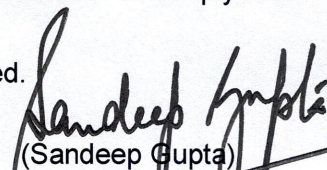 ed.
Sandeep Gupta
(Sandeep Gupta)